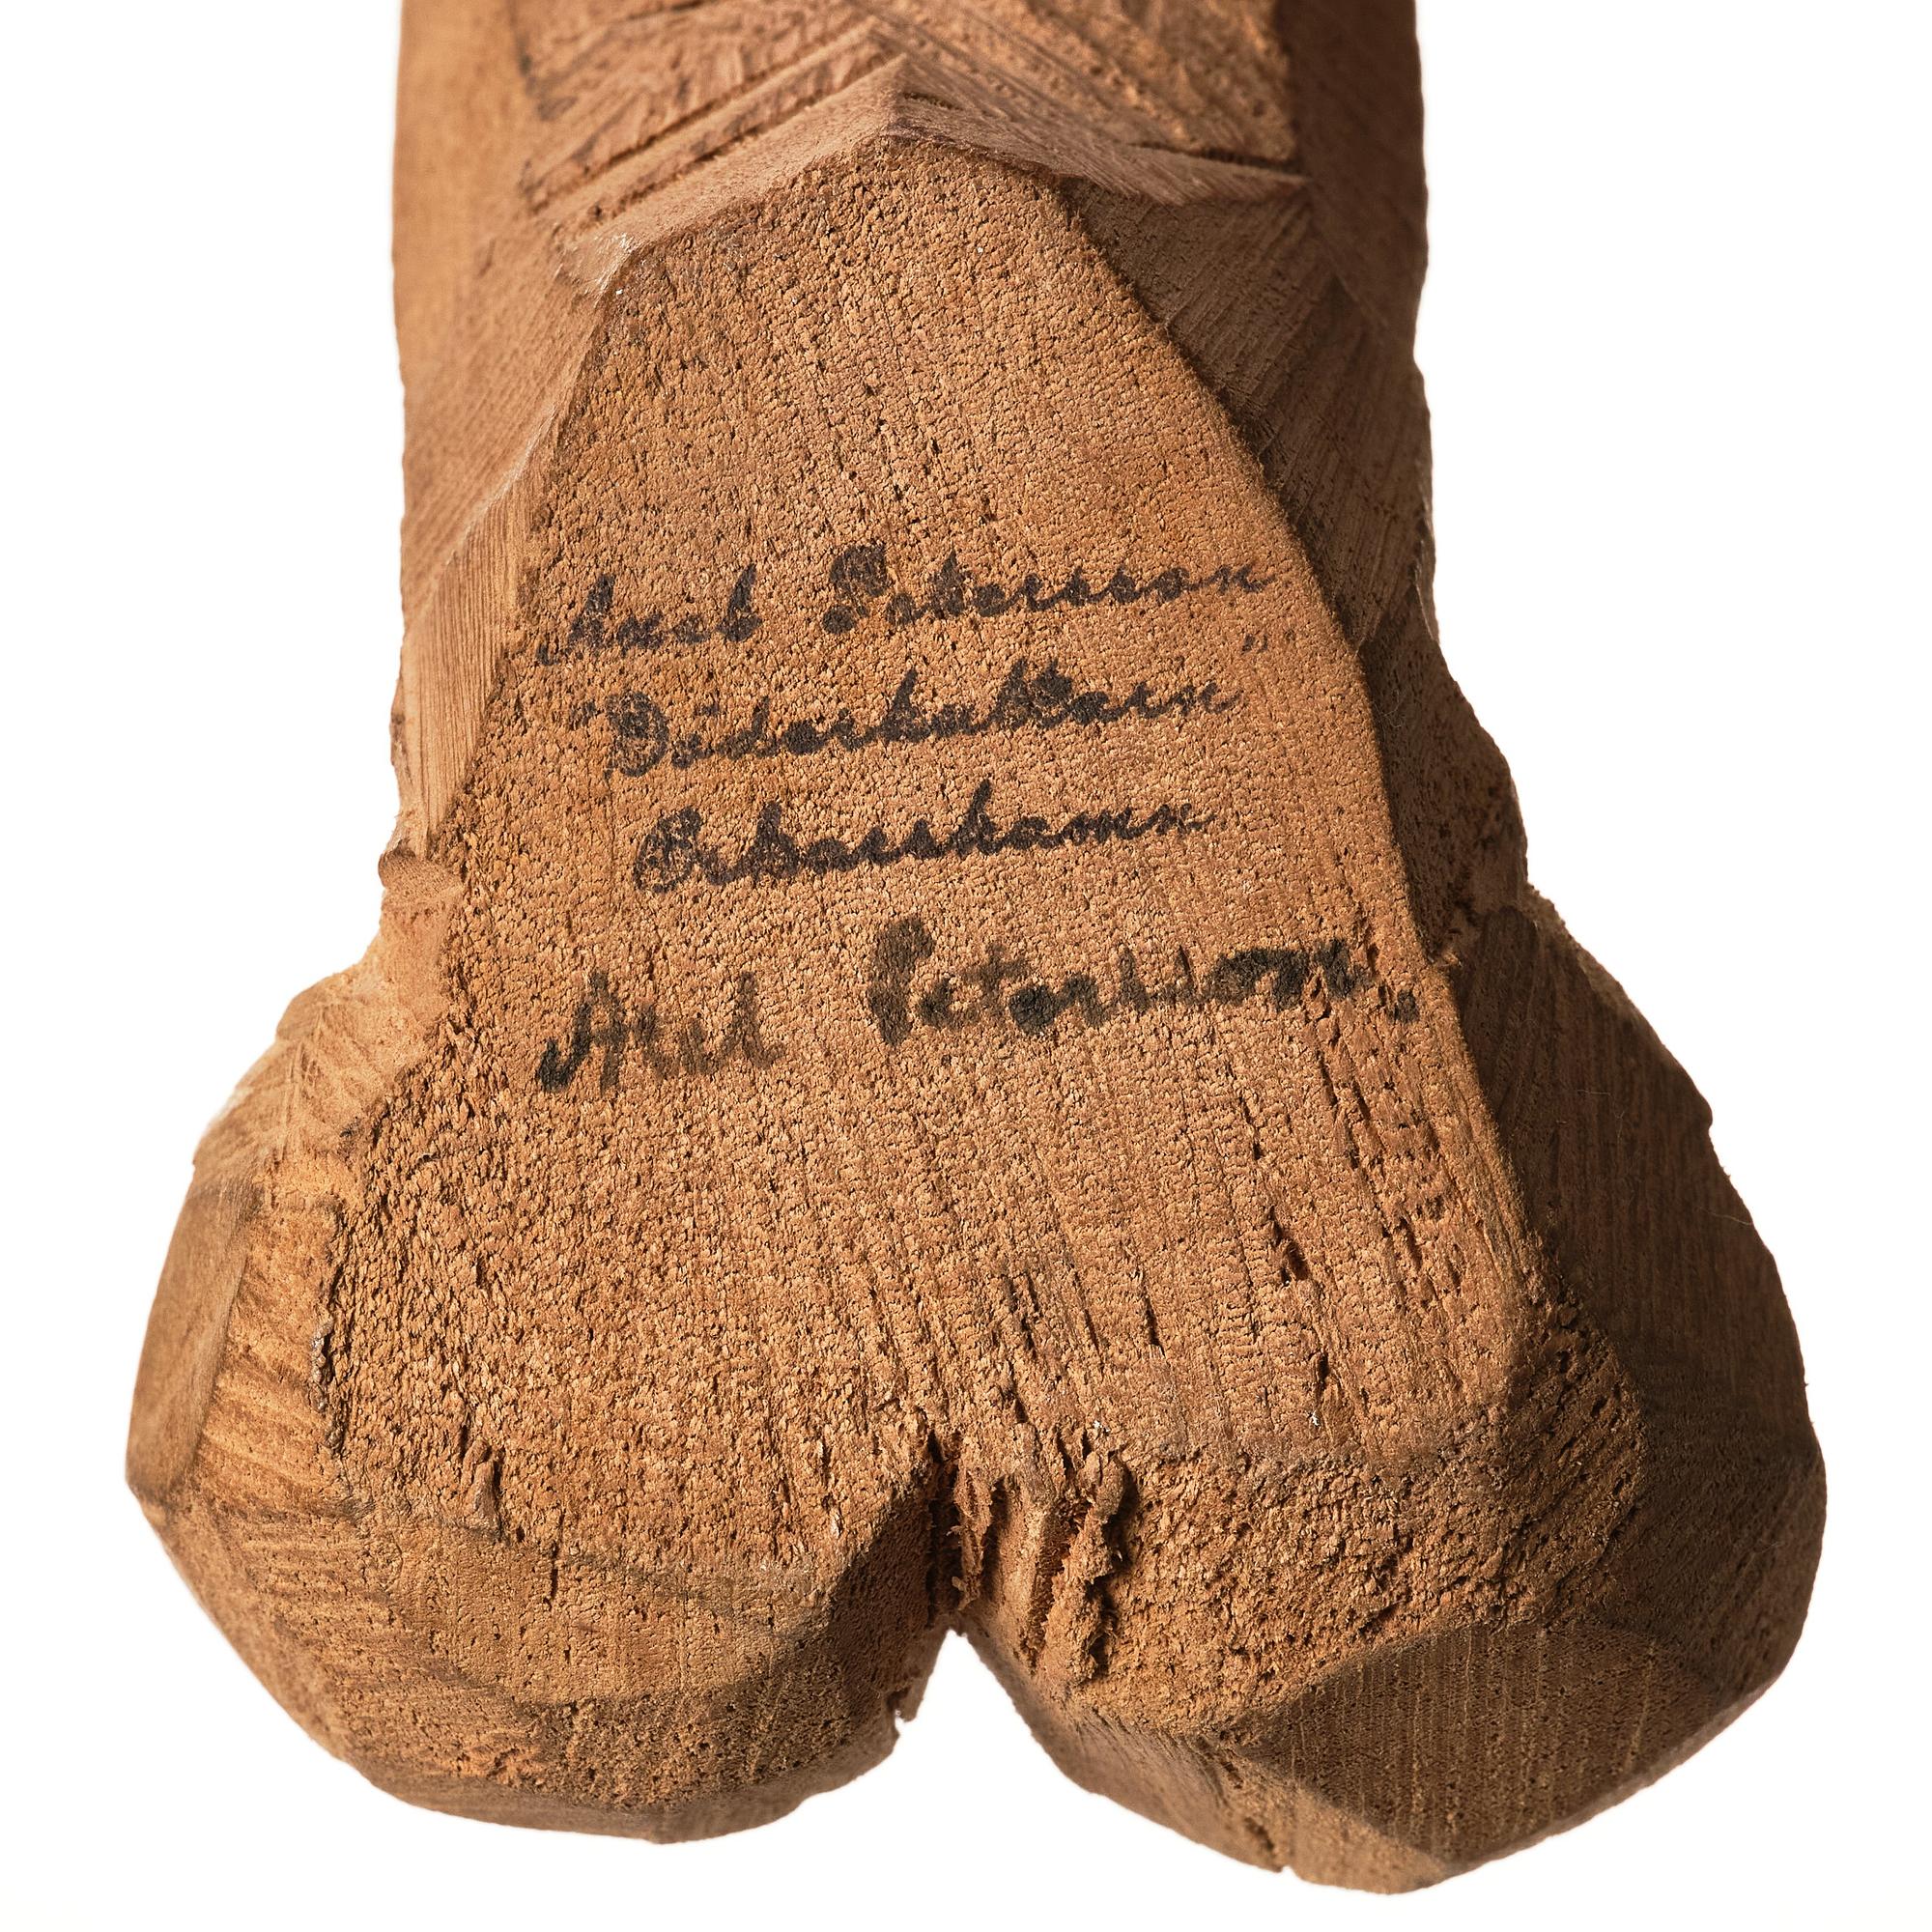 Axel Petersson
"Döderhultarn"
Oskarshamn
Axel Petersson